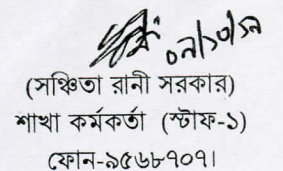 ০৭/১০/১৯
(সঞ্চিতা রানী সরকার)
শাখা কর্মকর্তা (স্টাফ-১)
ফোন-৯৫৬৮৭০৭।